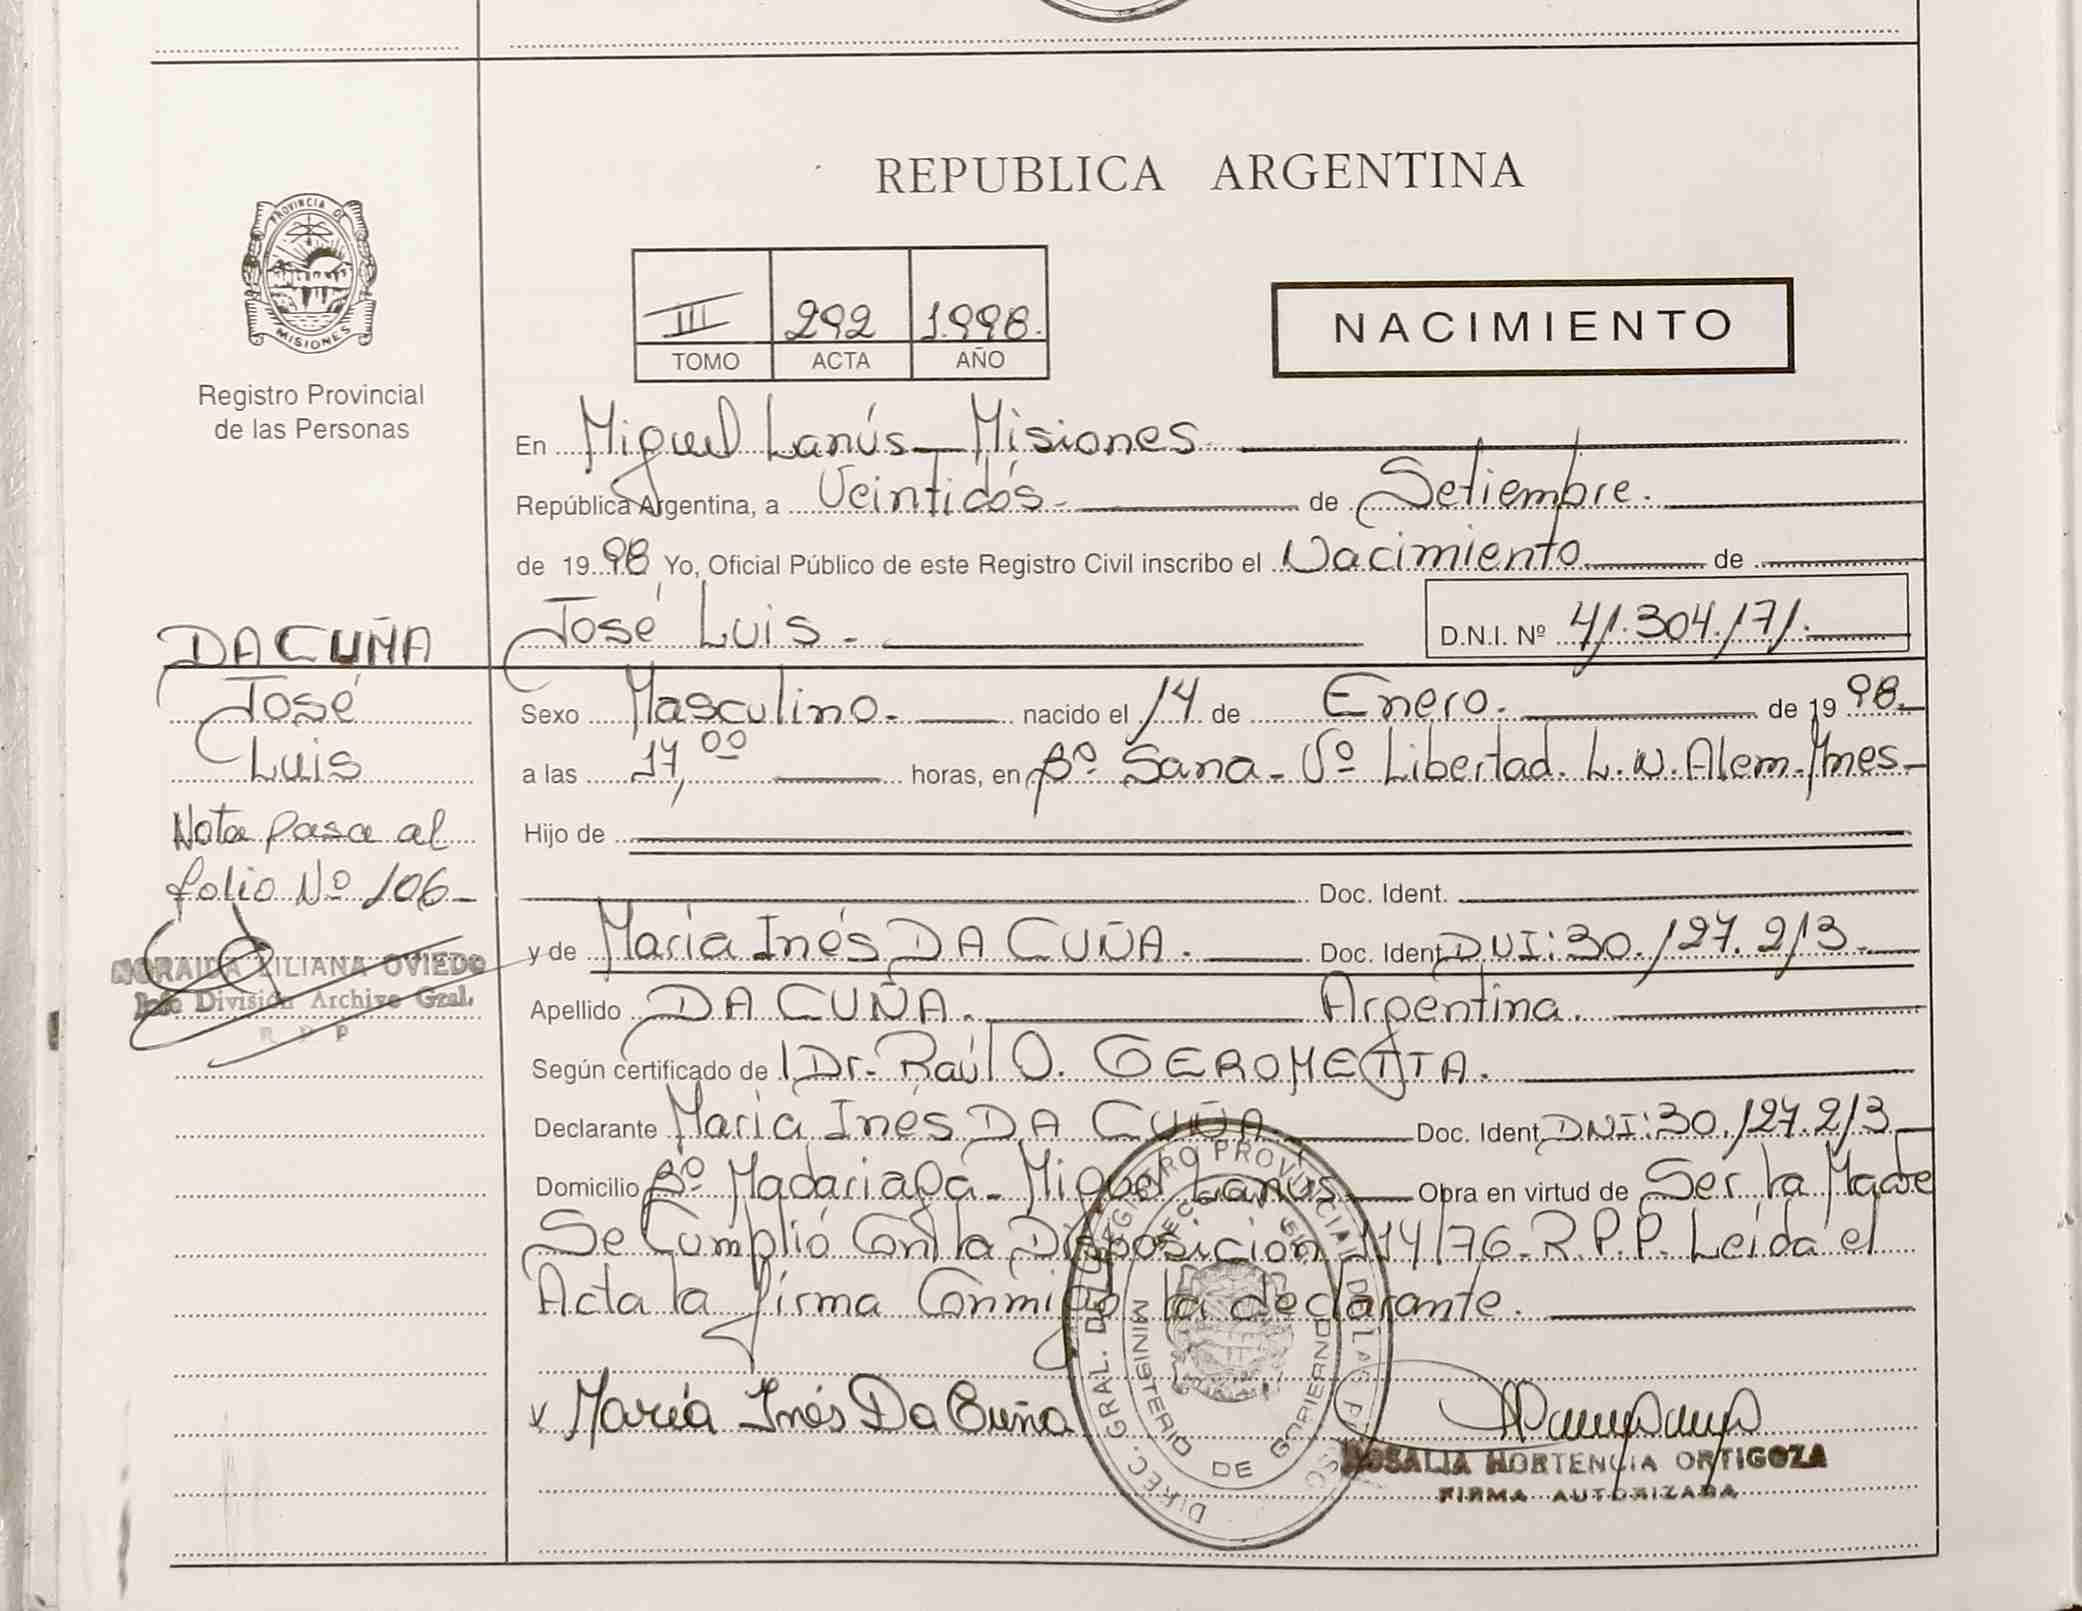 REPUBLICA ARGENTINA
PROVINCIA DE
MISIONES
Registro Provincial
de las Personas
III 292 1.998.
TOMO ACTA AÑO
NACIMIENTO
En Miguel Lanús - Misiones
República Argentina, a Veintidós - de Setiembre.
de 1998 Yo, Oficial Público de este Registro Civil inscribo el Nacimiento de
José Luis - D.N.I. Nº 41.304.171.
DA CUÑA
José
Luis
Nota pasa al
folio Nº 106-
NORAIDA LILIANA OVIEDO
Jefe División Archivo Gral.
R P P
Sexo Masculino. nacido el 14 de Enero. de 1998.
a las 17,00 horas, en Bº Sana - Vº Libertad. L.N. Alem - Mnes -
Hijo de
Doc. Ident.
y de María Inés DA CUÑA. Doc. Ident. DNI: 30.127.213
Apellido DA CUÑA. Argentina.
Según certificado de Dr. Raúl O. GEROMETTA.
Declarante María Inés DA CUÑA. Doc. Ident. DNI: 30.127.213
Domicilio Bº Madariaga - Miguel Lanús Obra en virtud de Ser la Madre
Se Cumplió con la Disposición 114/76 - R.P.P. Leída el
Acta la firma Conmigo la declarante.
x María Inés Da Cuña
ROSALIA HORTENCIA ORTIGOZA
FIRMA AUTORIZADA
DIREC. GRAL. DEL REGISTRO PROVINCIAL DE LAS PERSONAS
MINISTERIO DE GOBIERNO